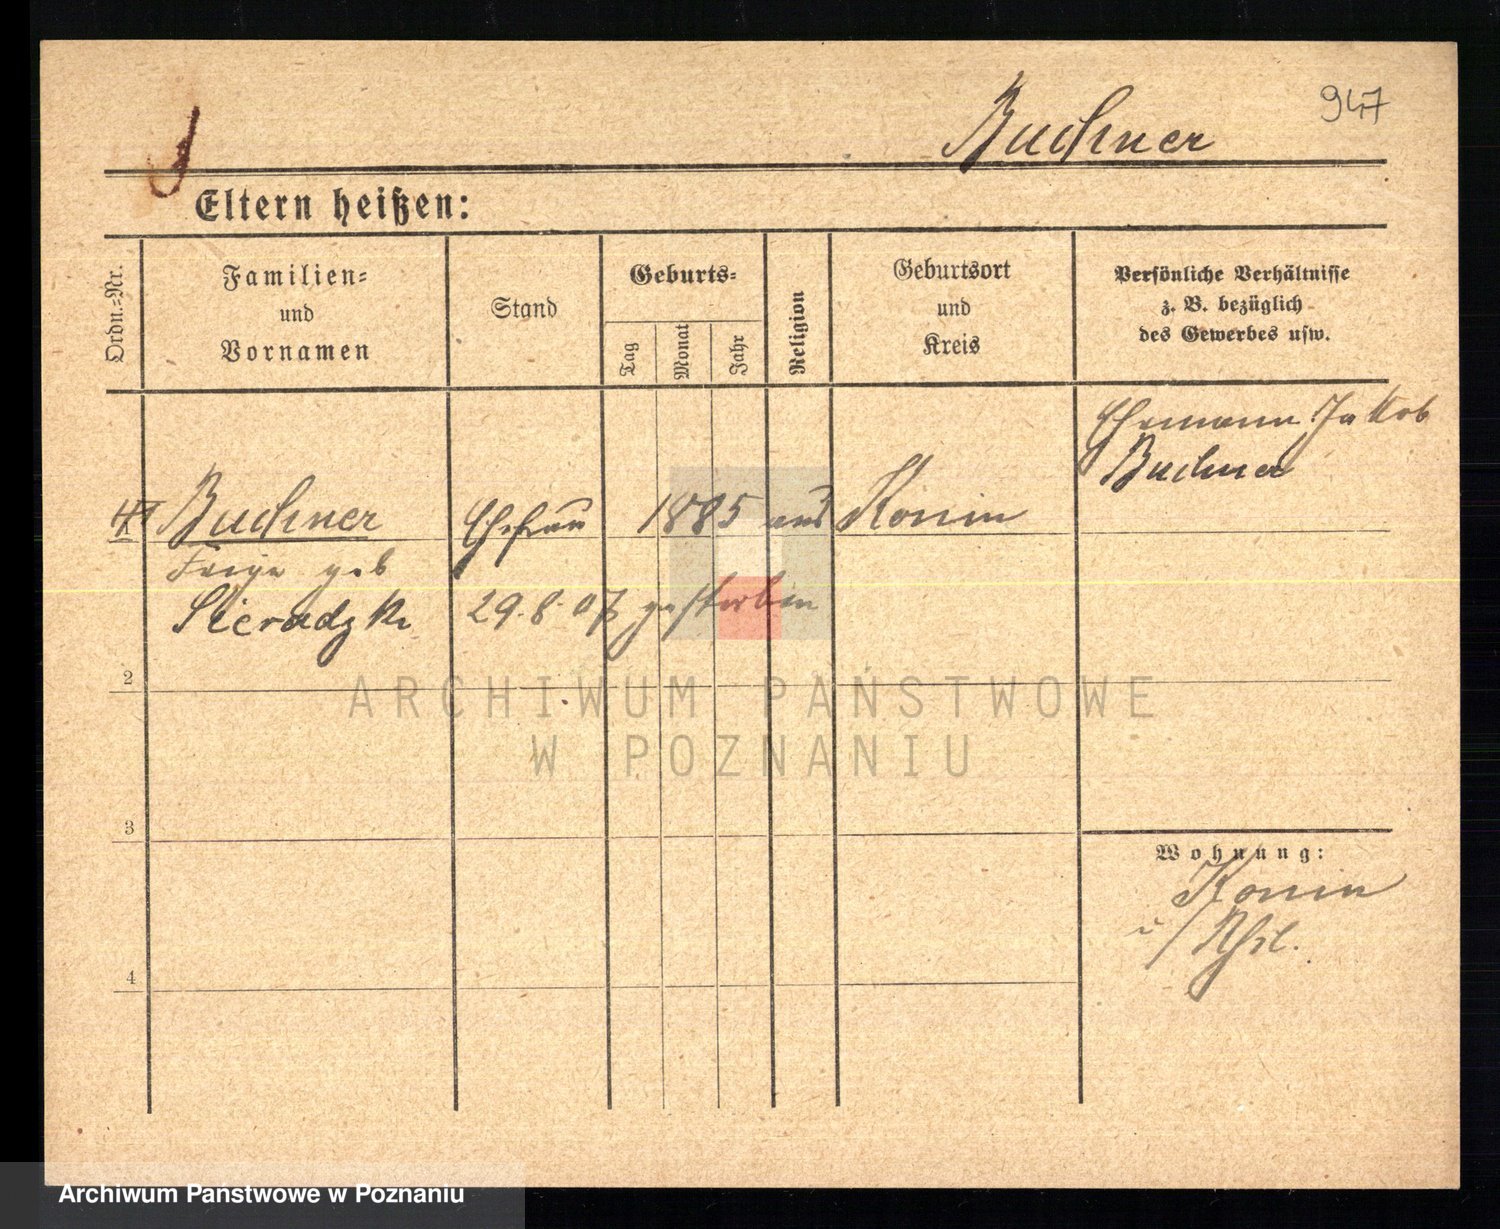 947
Buchner
Eltern heißen:
Ordn.-Nr.
Familien-
und
Vornamen
Stand
Geburts-
Tag
Monat
Jahr
Religion
Geburtsort
und
Kreis
Persönliche Verhältnisse
z. B. bezüglich
des Gewerbes usw.
Ehemann Jakob
Buchner
Buchner Ehefrau 1885 aus Konin
Feige geb
Sieradzki 29.8.07 gestorben
2
ARCHIWUM PAŃSTWOWE
W POZNANIU
3
Wohnung:
Konin
4
Archiwum Państwowe w Poznaniu